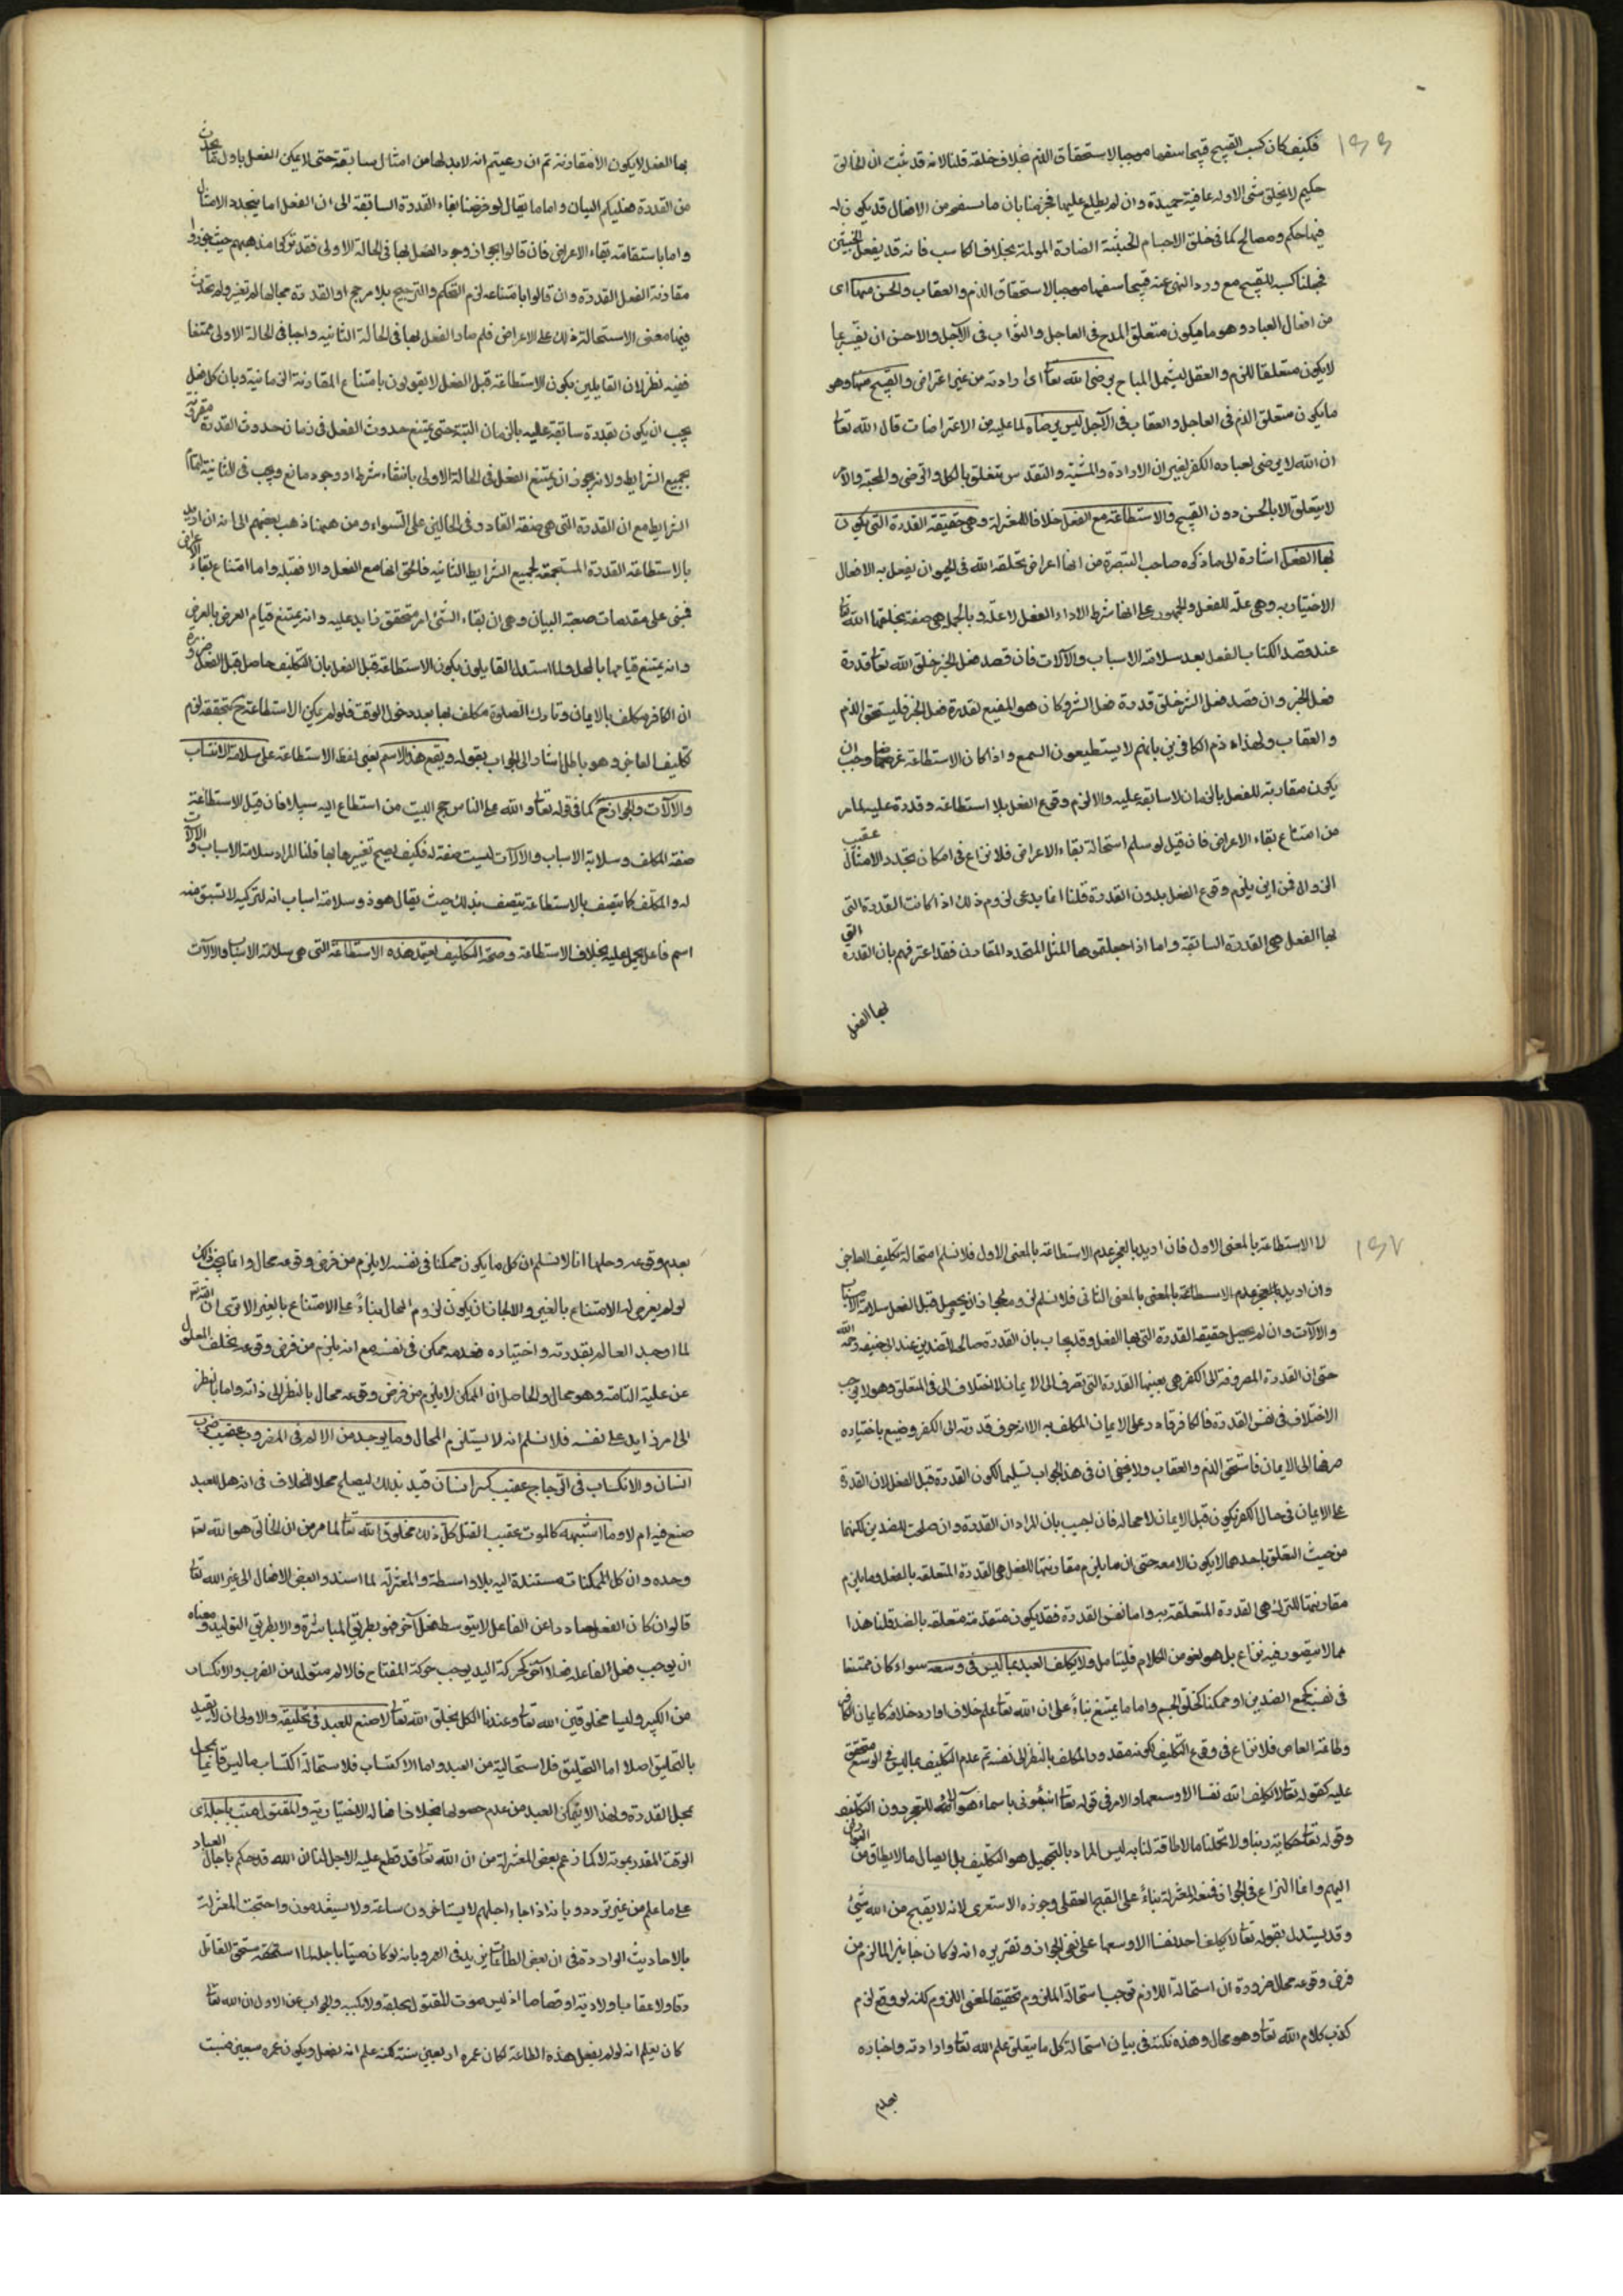 ١٦٦
فكيف كان كسب القبيح قبيحا سفها موجبا لاستحقاق الذم بخلاف خلقه قلنا لانه قد ثبت ان الخالق
حكيم لا يخلق شئ الا وله عاقبة حميدة وان لم يطلع عليها فجزمنا بان ما نستقبحه من الافعال قد يكون له
فيها حكم ومصالح كما فى خلق الاجسام الخبيثة الضارة المولمة بخلاف الكاسب فانه قد يفعل
فجعلنا كسبه للقبيح مع ورود النهى عنه قبيحا سفها موجبا لاستحقاق الذم والعقاب والحسن منها اى
من افعال العباد وهو ما يكون متعلق المدح فى العاجل والثواب فى الآجل والاحسن ان يفسر بما
لا يكون متعلقا للذم والعقل ليشمل المباح برضى الله تعا اى ارادته من غير اعتراض والقبيح منها وهو
ما يكون متعلق الذم فى العاجل والعقاب فى الآجل ليس برضاه لما عليه من الاعتراضات قال الله تعا
ان الله لا يرضى لعباده الكفر يعنى ان الارادة والمشية والتقدير يتعلق بالكل والرضى والمحبة والامر
لا يتعلق الا بالحسن دون القبيح والاستطاعة مع الفعل خلافا للمعتزلة وهى حقيقة القدرة التى يكون
بها الفعل اشارة الى ما ذكره صاحب التبصرة من انها اعراض يخلقه الله فى الحيوان يفعل به الافعال
الاختيارية وهى علة للفعل والجمهور على انها شرط لاداء الفعل لا علة وبالجملة هى صفة يخلقها الله تعا
عند قصد اكتساب الفعل بعد سلامة الاسباب والآلات فان قصد فعل الخير خلق الله تعا قدرة
فعل الخير وان قصد فعل الشر خلق قدرة فعل الشر وكان هو المضيع لقدرة فعل الخير فليستحق الذم
والعقاب ولهذا ذم الكافرين بانهم لا يستطيعون السمع واذا كان الاستطاعة عرضا وجب ان
يكون مقارنة للفعل بالزمان لا سابقة عليه والا لزم وقوع الفعل بلا استطاعة وقدرة عليه لما مر
من امتناع بقاء الاعراض فان قيل لو سلم استحالة بقاء الاعراض فلا نزاع فى امكان تجدد الامثال عقيب
الزوال فمن اين يلزم وقوع الفعل بدون القدرة قلنا انما يدعى لزوم ذلك اذا كانت القدرة التى
بها الفعل هى القدرة السابقة واما اذا جعلتموها المثل المتجدد المقارن فقد اعترفتم بان القدرة التى
بها الفعل
بها الفعل لا يكون الا مقارنة ثم ان ادعيتم انه لا بد لها من امثال سابقة حتى لا يمكن الفعل باول ما يحدث
من القدرة فعليكم البيان واما ما يقال لو فرضنا بقاء القدرة السابقة الى ان الفعل اما بتجدد الامثال
واما باستقامة بقاء الاعراض فان قالوا بجواز وجود الفعل بها فى الحالة الاولى فقد تركوا مذهبهم حيث جوزوا
مقارنة الفعل القدرة وان قالوا بامتناعه لزم التحكم والترجيح بلا مرجح اذ القدرة بحالها لم تتغير ولم يحدث
فيها معنى لاستحالة ذلك على الاعراض فلم صار الفعل بها فى الحالة الثانية واجبا فى الحالة الاولى ممتنعا
ففيه نظر لان القايلين بكون الاستطاعة قبل الفعل لا يقولون بامتناع المقارنة الزمانية وبان كل فعل
يجب ان يكون بقدرة سابقة عليه بالزمان البتة حتى يمتنع حدوث الفعل فى زمان حدوث القدرة مقرونة
بجميع الشرايط ولانه يجوز ان يمتنع الفعل فى الحالة الاولى بانتفاء شرط او وجود مانع ويجب فى الثانية لتمام
الشرايط مع ان القدرة التى هى صفة القادر فى الحالين على السواء ومن ههنا ذهب بعضهم الى انه ان اريد
بالاستطاعة القدرة المستجمعة لجميع الشرايط الثانية فالحق انها مع الفعل والا فقبله واما امتناع بقاء الاعراض
فمبنى على مقدمات صعبة البيان وهى ان بقاء الشئ امر متحقق زايد عليه وانه يمتنع قيام العرض بالعرض
وانه يمتنع قيامهما بالمحل ولما استدل القايلون بكون الاستطاعة قبل الفعل بان التكليف حاصل قبل الفعل ضرورة
ان الكافر مكلف بالايمان وتارك الصلوة مكلف بها بعد دخول الوقت فلو لم يكن الاستطاعة ح متحققة لزم
تكليف العاجز وهو باطل اشار الى الجواب بقوله ويقع هذا الاسم يعنى لفظ الاستطاعة على سلامة الاسباب
والآلات والجوارح كما فى قوله تعا ولله على الناس حج البيت من استطاع اليه سبيلا فان قيل الاستطاعة
صفة المكلف وسلامة الاسباب والآلات ليست صفة له فكيف يصح تفسيرها بها قلنا المراد سلامة الاسباب والآلات
له والمكلف كما يتصف بالاستطاعة يتصف بذلك حيث يقال هو ذو سلامة اسباب الا انه لتركبه لا يشتق منه
اسم فاعل يحمل عليه بخلاف الاستطاعة وصحة التكليف يعتمد هذه الاستطاعة التى هى سلامة الاسباب والآلات
١٦٧
لا الاستطاعة بالمعنى الاول فان اريد بالعجز عدم الاستطاعة بالمعنى الاول فلا نسلم استحالة تكليف العاجز
وان اريد بالعجز عدم الاستطاعة بالمعنى بالمعنى الثانى فلا نسلم لزومه لجواز ان يحصل قبل الفعل سلامة الاسباب
والآلات وان لم يحصل حقيقة القدرة التى بها الفعل وقد يجاب بان القدرة صالحة للضدين عند ابى حنيفة رحمه الله
حتى ان القدرة المصروفة الى الكفر هى بعينها القدرة التى تصرف الى الايمان لا اختلاف الا فى التعلق وهو لا يوجب
الاختلاف فى نفس القدرة فالكافر قادر على الايمان المكلف به الا انه صرف قدرته الى الكفر وضيع باختياره
صرفها الى الايمان فاستحق الذم والعقاب ولا يخفى ان فى هذا الجواب تسليما لكون القدرة قبل الفعل لان القدرة
على الايمان فى حال الكفر يكون قبل الايمان لا محالة فان اجيب بان المراد ان القدرة وان صلحت للضدين لكنها
من حيث التعلق باحدهما لا يكون الا معه حتى ان ما يلزم مقارنتها للفعل هى القدرة المتعلقة بالفعل وما يلزم
مقارنتها للترك هى القدرة المتعلقة به واما نفس القدرة فقد يكون متقدمة متعلقة بالضد قلنا هذا
مما لا يتصور فيه نزاع بل هو لغو من الكلام فليتامل ولا يكلف العبد بما ليس فى وسعه سواء كان ممتنعا
فى نفسه كجمع الضدين او ممكنا كخلق الجسم واما ما يمتنع بناءً على ان الله تعا علم خلافه او اراد خلافه كايمان الكافر
وطاعة العاصى فلا نزاع فى وقوع التكليف لكونه مقدور المكلف بالنظر الى نفسه ثم عدم التكليف بما ليس فى الوسع متفق
عليه كقوله تعا لا يكلف الله نفسا الا وسعها والامر فى قوله تعا انبئونى باسماء هؤلاء للتعجيز دون التكليف
وقوله تعا حكاية ربنا ولا تحملنا ما لا طاقة لنا به ليس المراد بالتحميل هو التكليف بل ايصال ما لا يطاق من العوارض
اليهم وانما النزاع فى الجواز فمنعه المعتزلة بناءً على القبح العقلى وجوزه الاشعرى لانه لا يقبح من الله شئ
وقد يستدل بقوله تعا لا يكلف الله نفسا الا وسعها على نفى الجواز وتقريره انه لو كان جايزا لما لزم من
فرض وقوعه محال ضرورة ان استحالة اللازم توجب استحالة الملزوم تحقيقا لمعنى اللزوم لكنه لو وقع لزم
كذب كلام الله تعا وهو محال وهذه نكتة فى بيان استحالة كل ما يتعلق علم الله تعا وارادته واخباره
بعدم
بعدم وقوعه وحلها انا لا نسلم ان كل ما يكون ممكنا فى نفسه لا يلزم من فرض وقوعه محال وانما يجب ذلك
لو لم يعرض له الامتناع بالغير والا لجاز ان يكون لزوم المحال بناءً على الامتناع بالغير الا ترى ان الله تعا
لما اوجد العالم بقدرته واختياره فعدمه ممكن فى نفسه مع انه يلزم من فرض وقوعه تخلف المعلول
عن علته التامة وهو محال والحاصل ان الممكن لا يلزم من فرض وقوعه محال بالنظر الى ذاته واما بالنظر
الى امر زايد على نفسه فلا نسلم انه لا يستلزم المحال وما يوجد من الالم فى المضروب عقيب ضرب
انسان والانكسار فى الزجاج عقيب كسر انسان قيد بذلك ليصلح محلا للخلاف فى انه هل للعبد
صنع فيه ام لا وما اشبهه كالموت عقيب القتل كل ذلك مخلوق الله تعا لما مر من ان الخالق هو الله تعا
وحده وان كل الممكنات مستندة اليه بلا واسطة والمعتزلة لما اسندوا بعض الافعال الى غير الله تعا
قالوا ان كان الفعل صادرا عن الفاعل لا بتوسط فعل آخر فهو بطريق المباشرة والا بطريق التوليد ومعناه
ان يوجب فعل لفاعله فعلا آخر كحركة اليد يوجب حركة المفتاح فالالم متولد من الضرب والانكسار
من الكسر وليسا مخلوقين الله تعا وعندنا الكل بخلق الله تعا لا صنع للعبد فى تخليقه والاولى ان لا يقيد
بالتخليق اصلا اما التخليق فلاستحالته من العبد واما الاكتساب فلاستحالة اكتساب ما ليس قائما بمحل
بمحل القدرة ولهذا لا يتمكن العبد من عدم حصولها بخلاف افعاله الاختيارية والمقتول ميت باجله اى
الوقت المقدر بموته لا كما زعم بعض المعتزلة من ان الله تعا قد قطع عليه الاجل لنا ان الله قد حكم باجال العباد
على ما علم من غير تردد وبانه اذا جاء اجلهم لا يستاخرون ساعة ولا يستقدمون واحتجت المعتزلة
بالاحاديث الواردة فى ان بعض الطاعات يزيد فى العمر وبانه لو كان ميتا باجله لما استحق القاتل
ذما ولا عقابا ولا دية او قصاصا اذ ليس موت المقتول بخلقه ولا بكسبه والجواب عن الاول ان الله تعا
كان يعلم انه لو لم يفعل هذه الطاعة لكان عمره اربعين سنة لكنه علم انه يفعل ويكون عمره سبعين فنسبت